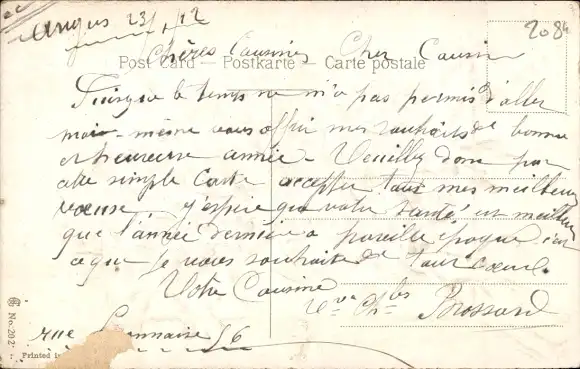 Angers 23/1/12
2084
Chères Cousines Cher Cousin
Post Card — Postkarte — Carte postale
Puisque le temps ne m'a pas permis d'aller
moi-même vous offrir mes souhaits de bonne
et heureuse année - Veuillez donc par
cette simple Carte accepter tous mes meilleurs
vœux - j'espère que votre santé est meilleure
que l'année dernière a pareille époque c'est
ce que je vous souhaite de tout cœur.
Votre Cousine
Vve Ch les Brossard
rue 56
No. 202
Printed in